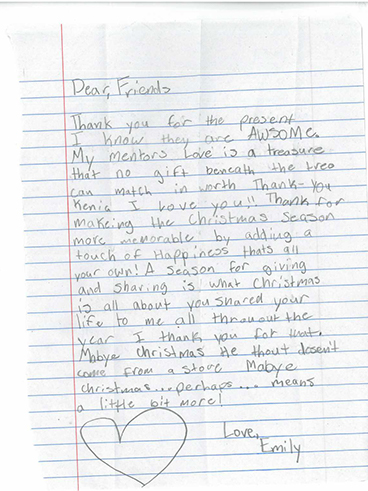 Dear, Friends
Thank you for the present
I know they are AWSOMe.
My mentors Love is a treasure
that no gift beneath the tree
can match in worth Thank-you
Kenia I Love you!! Thank for
makeing the Christmas Season
more memorable by adding a
touch of Happiness thats all
your own! A Season for giving
and sharing is what Christmas
is all about you shared your
life to me all throuout the
year I thank you for that.
Mabye Christmas He thout doesn't
come from a store Mabye
christmas...perhaps... means
a little bit more!
Love,
Emily